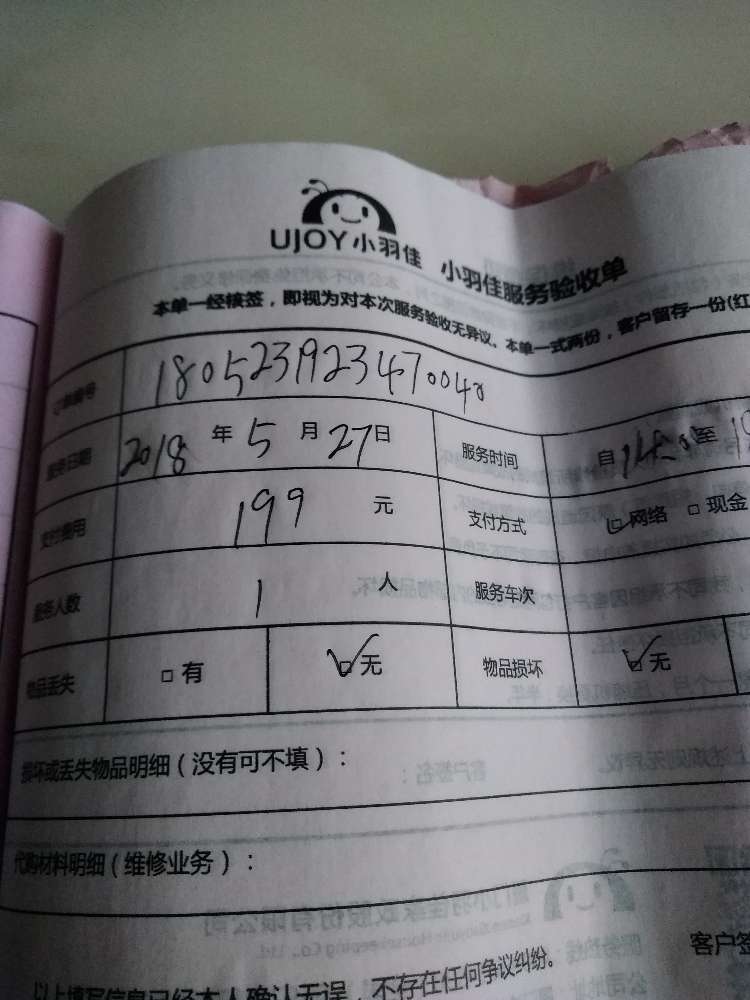 UJOY小羽佳 小羽佳服务验收单
本单一经核签，即视为对本次服务验收无异议。本单一式两份，客户留存一份(红
订单编号 180523192347004
服务日期 2018年5月27日 服务时间 自 至
支付费用 199元 支付方式 网络 现金
服务人数 1人 服务车次
物品丢失 有 无 物品损坏 无
损坏或丢失物品明细（没有可不填）：
代购材料明细（维修业务）：
客户签
以上填写信息已经本人确认无误，不存在任何争议纠纷。